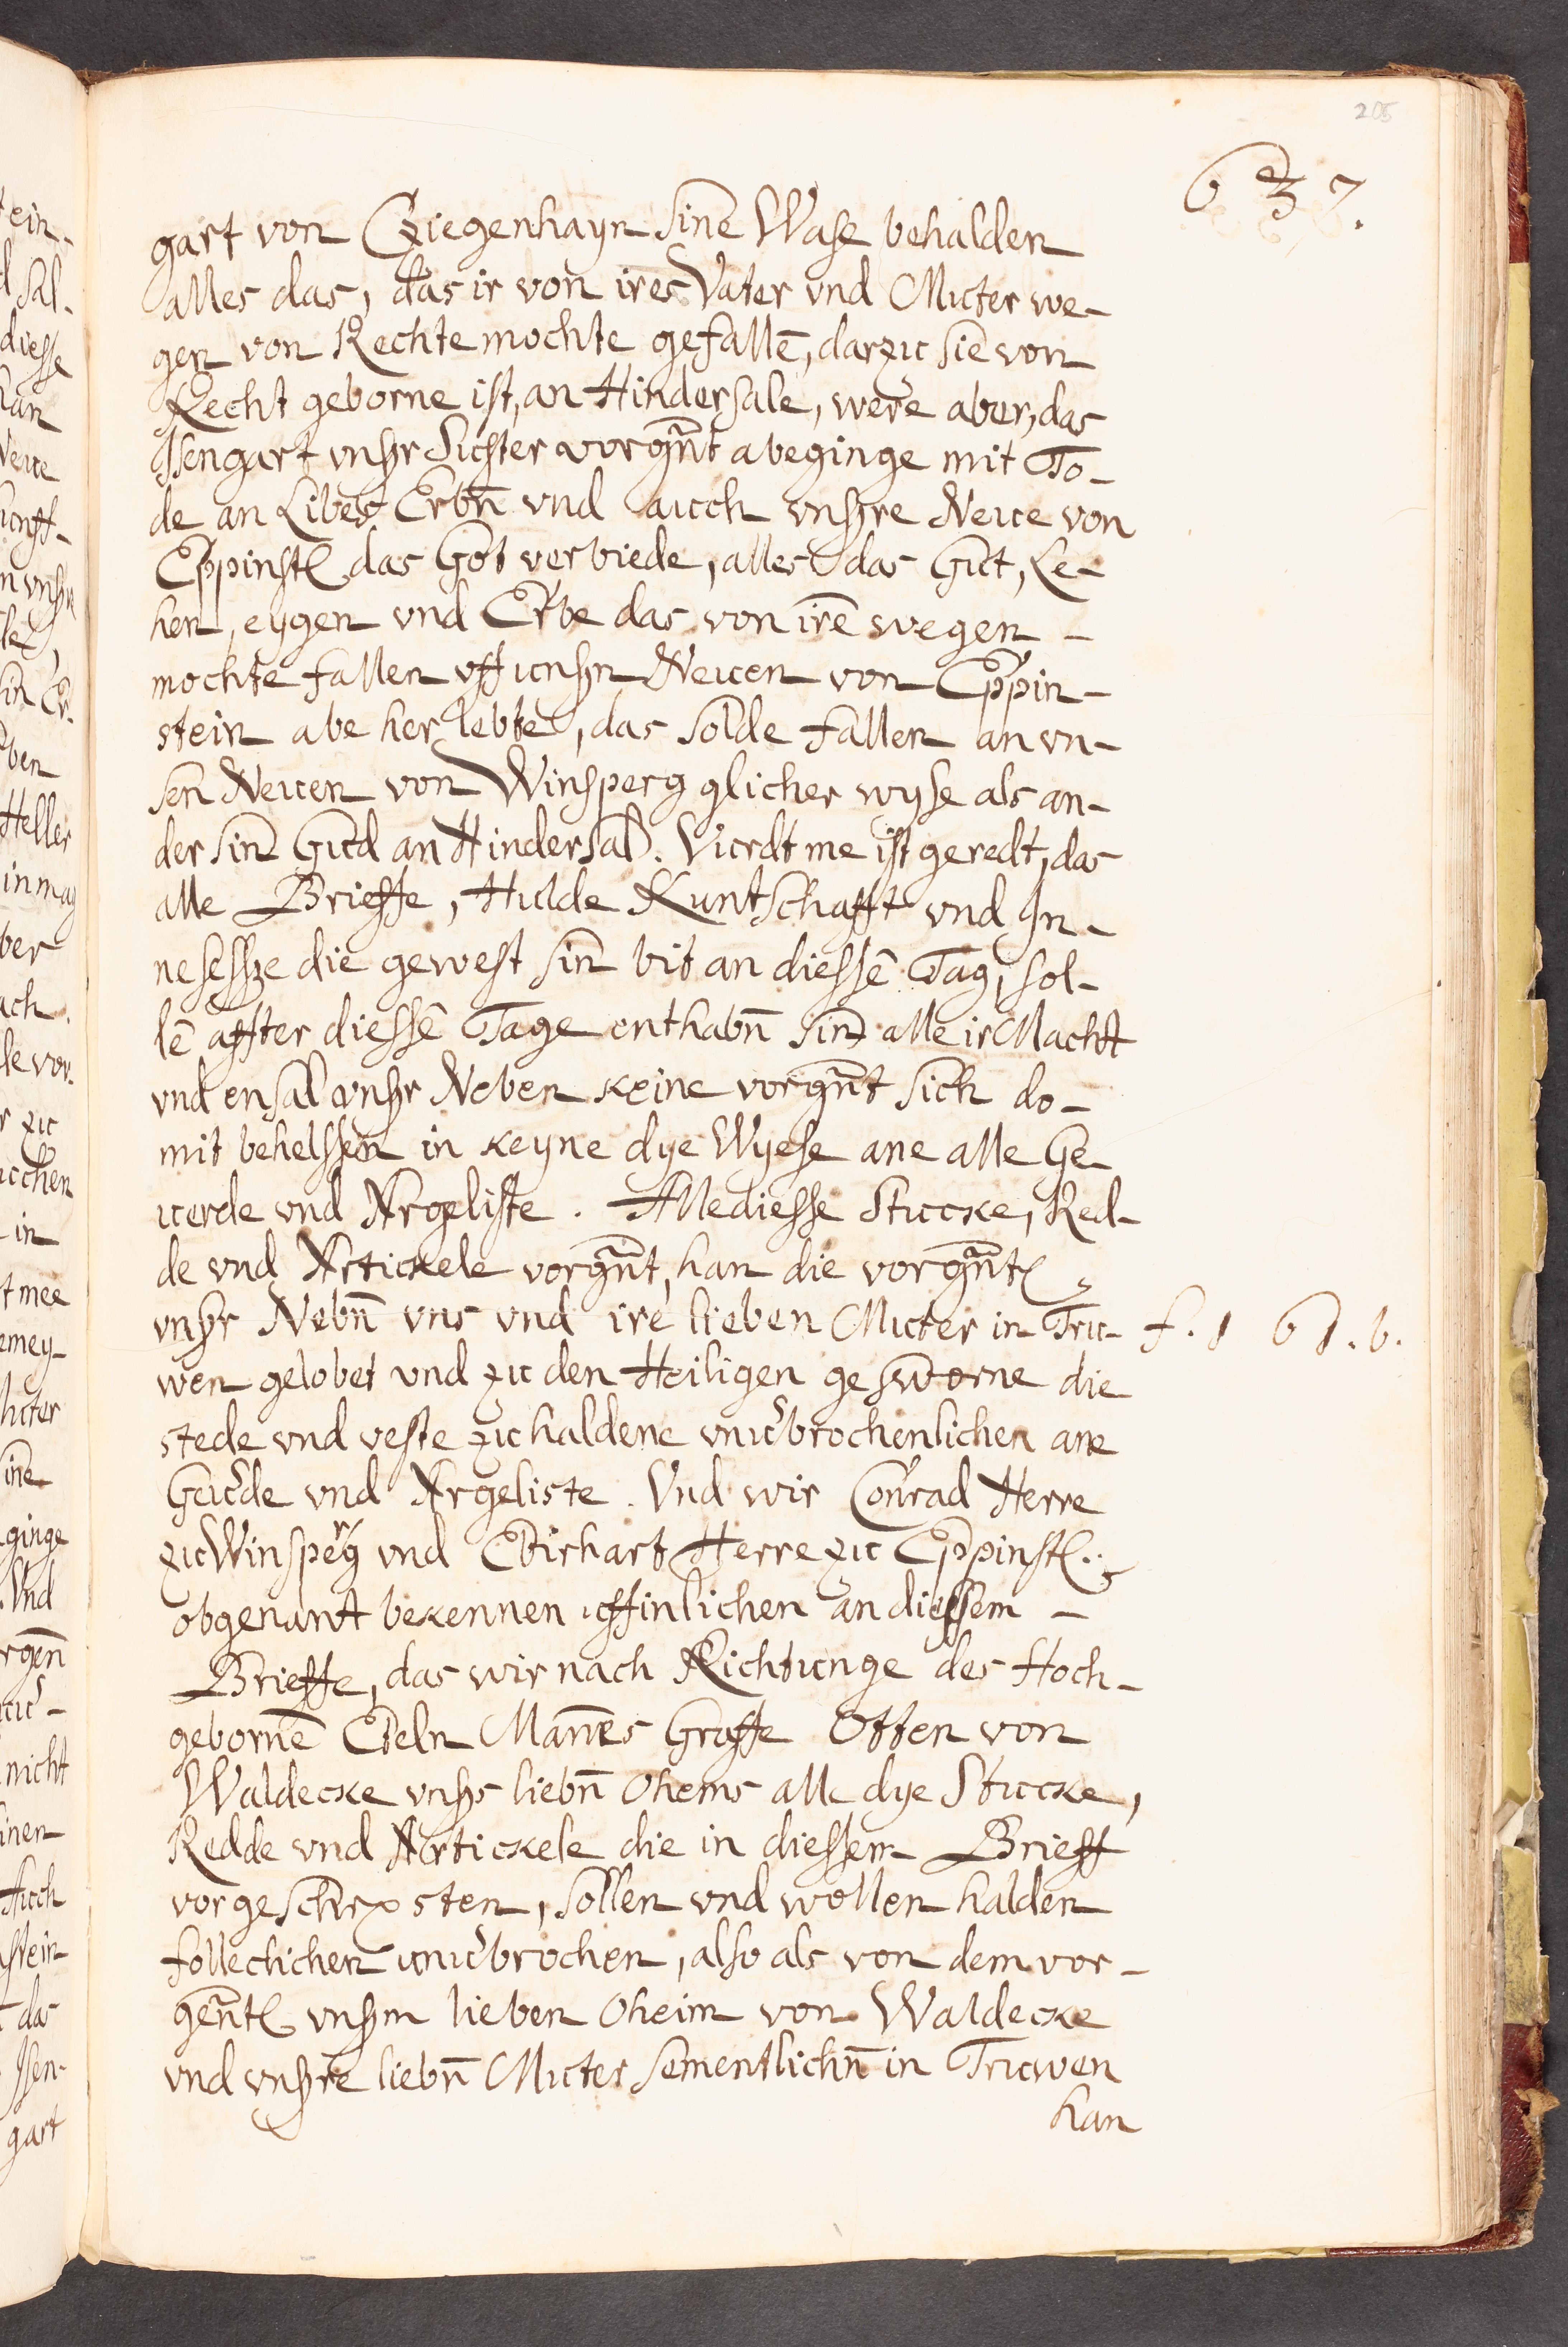 205
637.
gart von Cziegenhayn sine Wase behalden
alles das, das ir von ires Vater vnd Muter we-
gen von Rechte mochte gefallē, darzu sie von
Recht geborne ist, an Hindersale, were aber, das
Isengart vnßr Suster vorgn̄t abeginge mit To-
de an Libes Erbn̄ vnd auch vnßre Neue von
Eppinst das Got verbiede, alles das Gut, Le-
hen, eygen vnd Erbe das von irē wegen -
mochte fallen vff unßn Neuen von Eppin-
stein abe her lebte, das solde fallen an vn-
sen Neuen von Winsperg glicher wyse als an-
der sin Gud an Hindersal. Vurdt me ist geredt, das
alle Brieffe, Hulde Kuntschafft vnd In-
nesessze die gewest sin bit an diessē Tag, sol-
lē affter diessē Tage enthabn̄ sin alle ir Macht
vnd ensal vnßr Neben keine vorgn̄t sich do-
mit behelffen in keyne dye Wyese ane alle Ge
uerde vnd Argeliste. Alle diesse Stucke, Red-
de vnd Artickele vorgn̄t, han die vorgn̄t
vnßr Nebn̄ vns vnd ire lieben Muter in Tru-
f. 161. b.
wen gelobet vnd zu den Heiligen gesworne die
stede vnd veste zu haldene vnu̕brochenlichen ane
Geu̕de vnd Argeliste. Vnd wir Conrad Herre
zu Winsperg vnd Ebirhart Herre zu Eppinst.
obgenant bekennen uffinlichen an diessem -
Brieffe, das wir nach Richtunge des Hoch-
gebornē Edeln Mannes Graffe Otten von
Waldecke vnßs liebn̄ Ohems alle dye Stucke,
Redde vnd Artickele die in diessem Brieff
vorgeschr sten, sollen vnd wollen halden
follechichen unu̕brochen, also als von dem vor-
gen̄t vnßm lieben Oheim von Waldecke
vnd vnßre liebn̄ Muter sementlichn̄ in Truwen
han